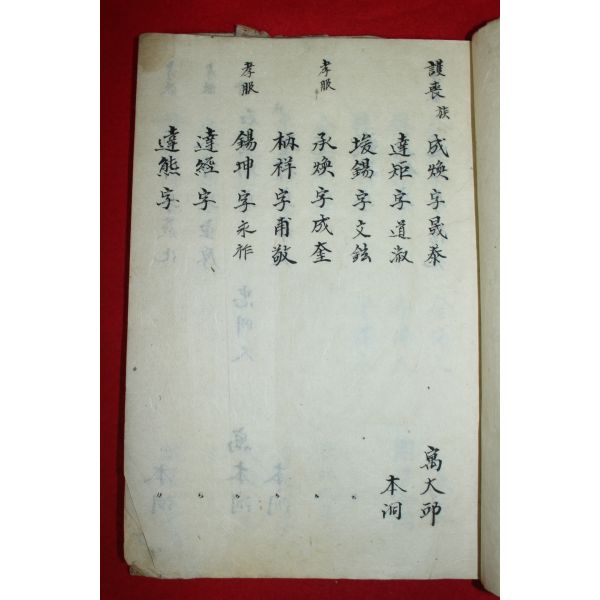 護喪 族 成煥 字晟泰 寓大邱
達矩 字道淑 本洞
埈錫 字文鉉 〃
孝服 承煥 字成奎 〃
柄祥 字甫敬 〃
孝服 錫坤 字永祚 〃
達經 字 〃
達熊 字 〃